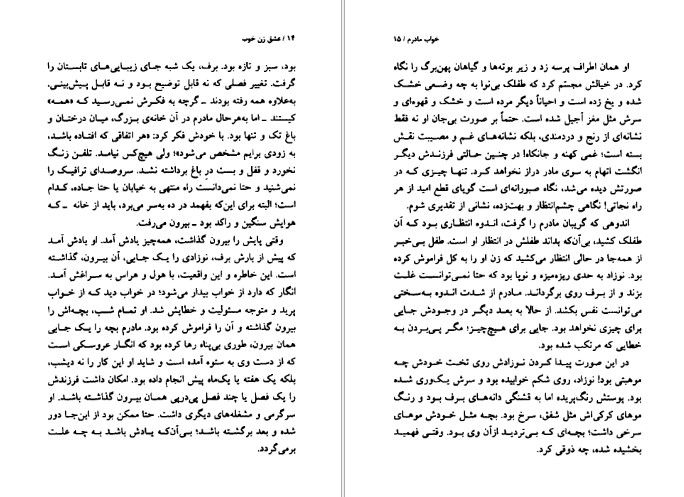 ۱۴ / عشق زن خوب
بود، سبز و تازه بود. برف، یک شبه جای زیبایی‌های تابستان را
گرفت. تغییر فصلی که نه قابل توضیح بود و نه قابل پیش‌بینی،
به‌علاوه همه رفته بودند ـ گرچه به فکرش نمی‌رسید که «همه»
کیستند ـ اما به‌هرحال مادرم در آن خانه‌ی بزرگ، میان درختان و
باغ تک و تنها بود. با خودش فکر کرد: «هر اتفاقی که افتاده باشد،
به زودی برایم مشخص می‌شود»؛ ولی هیچ‌کس نیامد. تلفن زنگ
نخورد و قفل و بست درِ باغ برداشته نشد. سروصدای ترافیک را
نمی‌شنید و حتا نمی‌دانست راه منتهی به خیابان یا حتا جاده، کدام
است؛ البته برای این‌که بفهمد در ده به‌سر می‌برد، باید از خانه ـ که
هوایش سنگین و راکد بود ـ بیرون می‌رفت.
وقتی پایش را بیرون گذاشت، همه‌چیز یادش آمد. او یادش آمد
که پیش از بارش برف، نوزادی را یک جایی، آن بیرون، گذاشته
است. این خاطره و این واقعیت، با هول و هراس به سراغش آمد.
انگار که دارد از خواب بیدار می‌شود؛ در خواب دید که از خواب
پرید و متوجه مسئولیت و خطایش شد. او تمام شب، بچه‌اش را
بیرون گذاشته و آن را فراموش کرده بود. مادرم بچه را یک جایی
همان بیرون، طوری بی‌پناه رها کرده بود که انگار عروسکی است
که از دست وی به ستوه آمده است و شاید او این کار را نه دیشب،
بلکه یک هفته یا یک‌ماه پیش انجام داده بود. امکان داشت فرزندش
را یک فصل یا چند فصل پی‌درپی همان بیرون گذاشته باشد. او
سرگرمی و مشغله‌های دیگری داشت. حتا ممکن بود از این‌جا دور
شده و بعد برگشته باشد؛ بی‌آن‌که یادش باشد به چه علت
برمی‌گردد.
خواب مادرم / ۱۵
او همان اطراف پرسه زد و زیر بوته‌ها و گیاهان پهن‌برگ را نگاه
کرد. در خیالش مجسم کرد که طفلک بی‌نوا به چه وضعی خشک
شده و یخ زده است و احیاناً دیگر مرده است و خشک و قهوه‌ای و
سرش مثل مغز آجیل شده است. حتماً بر صورت بی‌جان او نه فقط
نشانه‌ای از رنج و دردمندی، بلکه نشانه‌های غم و مصیبت نقش
بسته است؛ غمی کهنه و جانکاه! در چنین حالتی فرزندش دیگر
انگشت اتهام به سوی مادر دراز نخواهد کرد. تنها چیزی که در
صورتش دیده می‌شد، نگاه صبورانه‌ای است گویای قطع امید از هر
راه نجاتی! نگاهی چشم‌انتظار و بهت‌زده، نشانی از تقدیری شوم.
اندوهی که گریبان مادرم را گرفت، اندوه انتظاری بود که آن
طفلک کشید، بی‌آن‌که بداند طفلش در انتظار او است. طفل بی‌خبر
از همه‌جا در حالی انتظار می‌کشید که زن او را به کل فراموش‌کرده
بود. نوزاد به حدی ریزه‌میزه و نوپا بود که حتا نمی‌توانست غلت
بزند و از برف روی برگرداند. مادرم از شدت اندوه به‌سختی
می‌توانست نفس بکشد. از حالا به بعد دیگر در وجودش جایی
برای چیزی نخواهد بود. جایی برای هیچ‌چیز؛ مگر پی‌بردن به
خطایی که مرتکب شده بود.
در این صورت پیدا کردن نوزادش روی تخت خودش چه
موهبتی بود! نوزاد، روی شکم خوابیده بود و سرش یک‌وری شده
بود. پوستش رنگ‌پریده اما به قشنگی دانه‌های برف بود و رنگ
موهای کرکی‌اش مثل شفق، سرخ بود. بچه مثل خودش موهای
سرخی داشت؛ بچه‌ای که بی‌تردید ازآن وی بود. وقتی فهمید
بخشیده شده، چه ذوقی کرد.